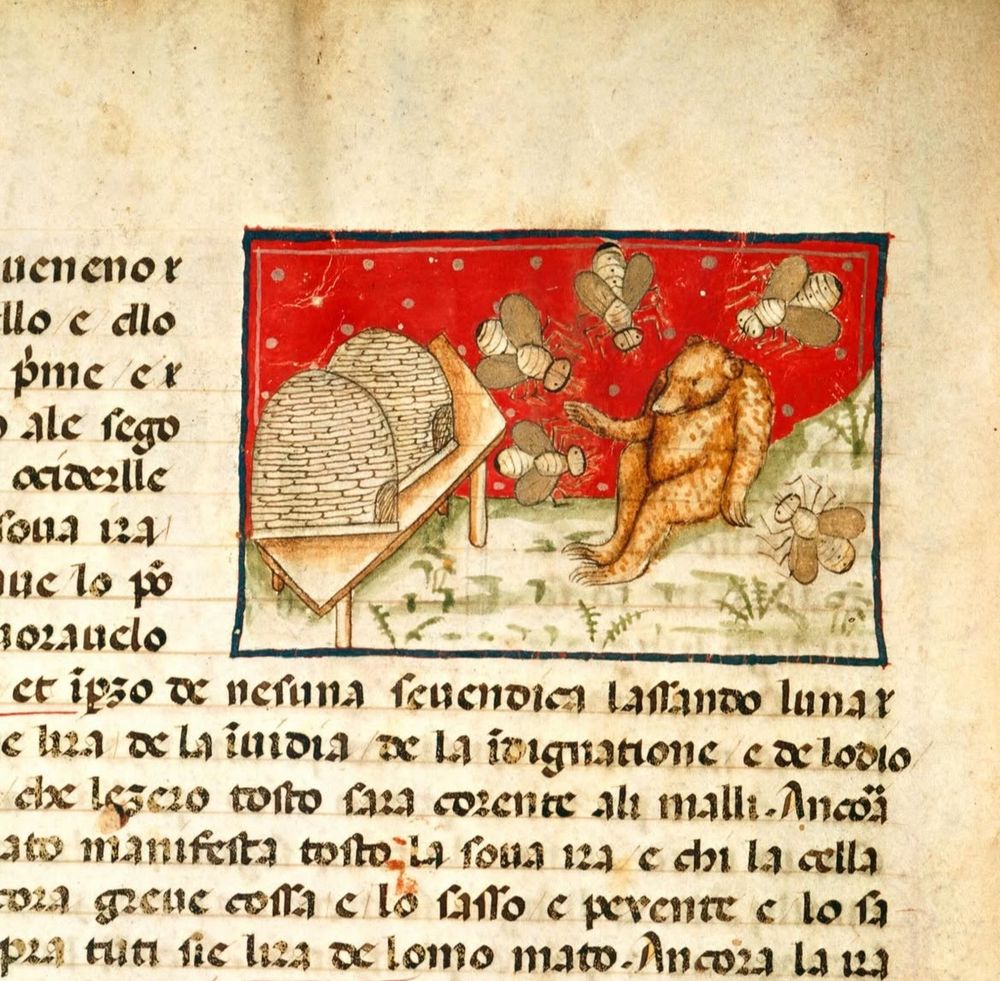 ueneno ꝛ
llo e dllo
p̄me e ꝛ
o ale sego
ociderlle
soua ira
ue lo po̅
uorauelo
et ip̄zo de nesuna seuendica lassando luna ꝛ
e lira de la īuidia de la īdignatione e de lodio
che legero tosto sara corente ali malli. Ancora
ato manifesta tosto la soua ira e chi la cella
cora greue cossa e lo sasso e pexente e lo sa
pra tuti sie lira de lomo mato. Ancora la ira